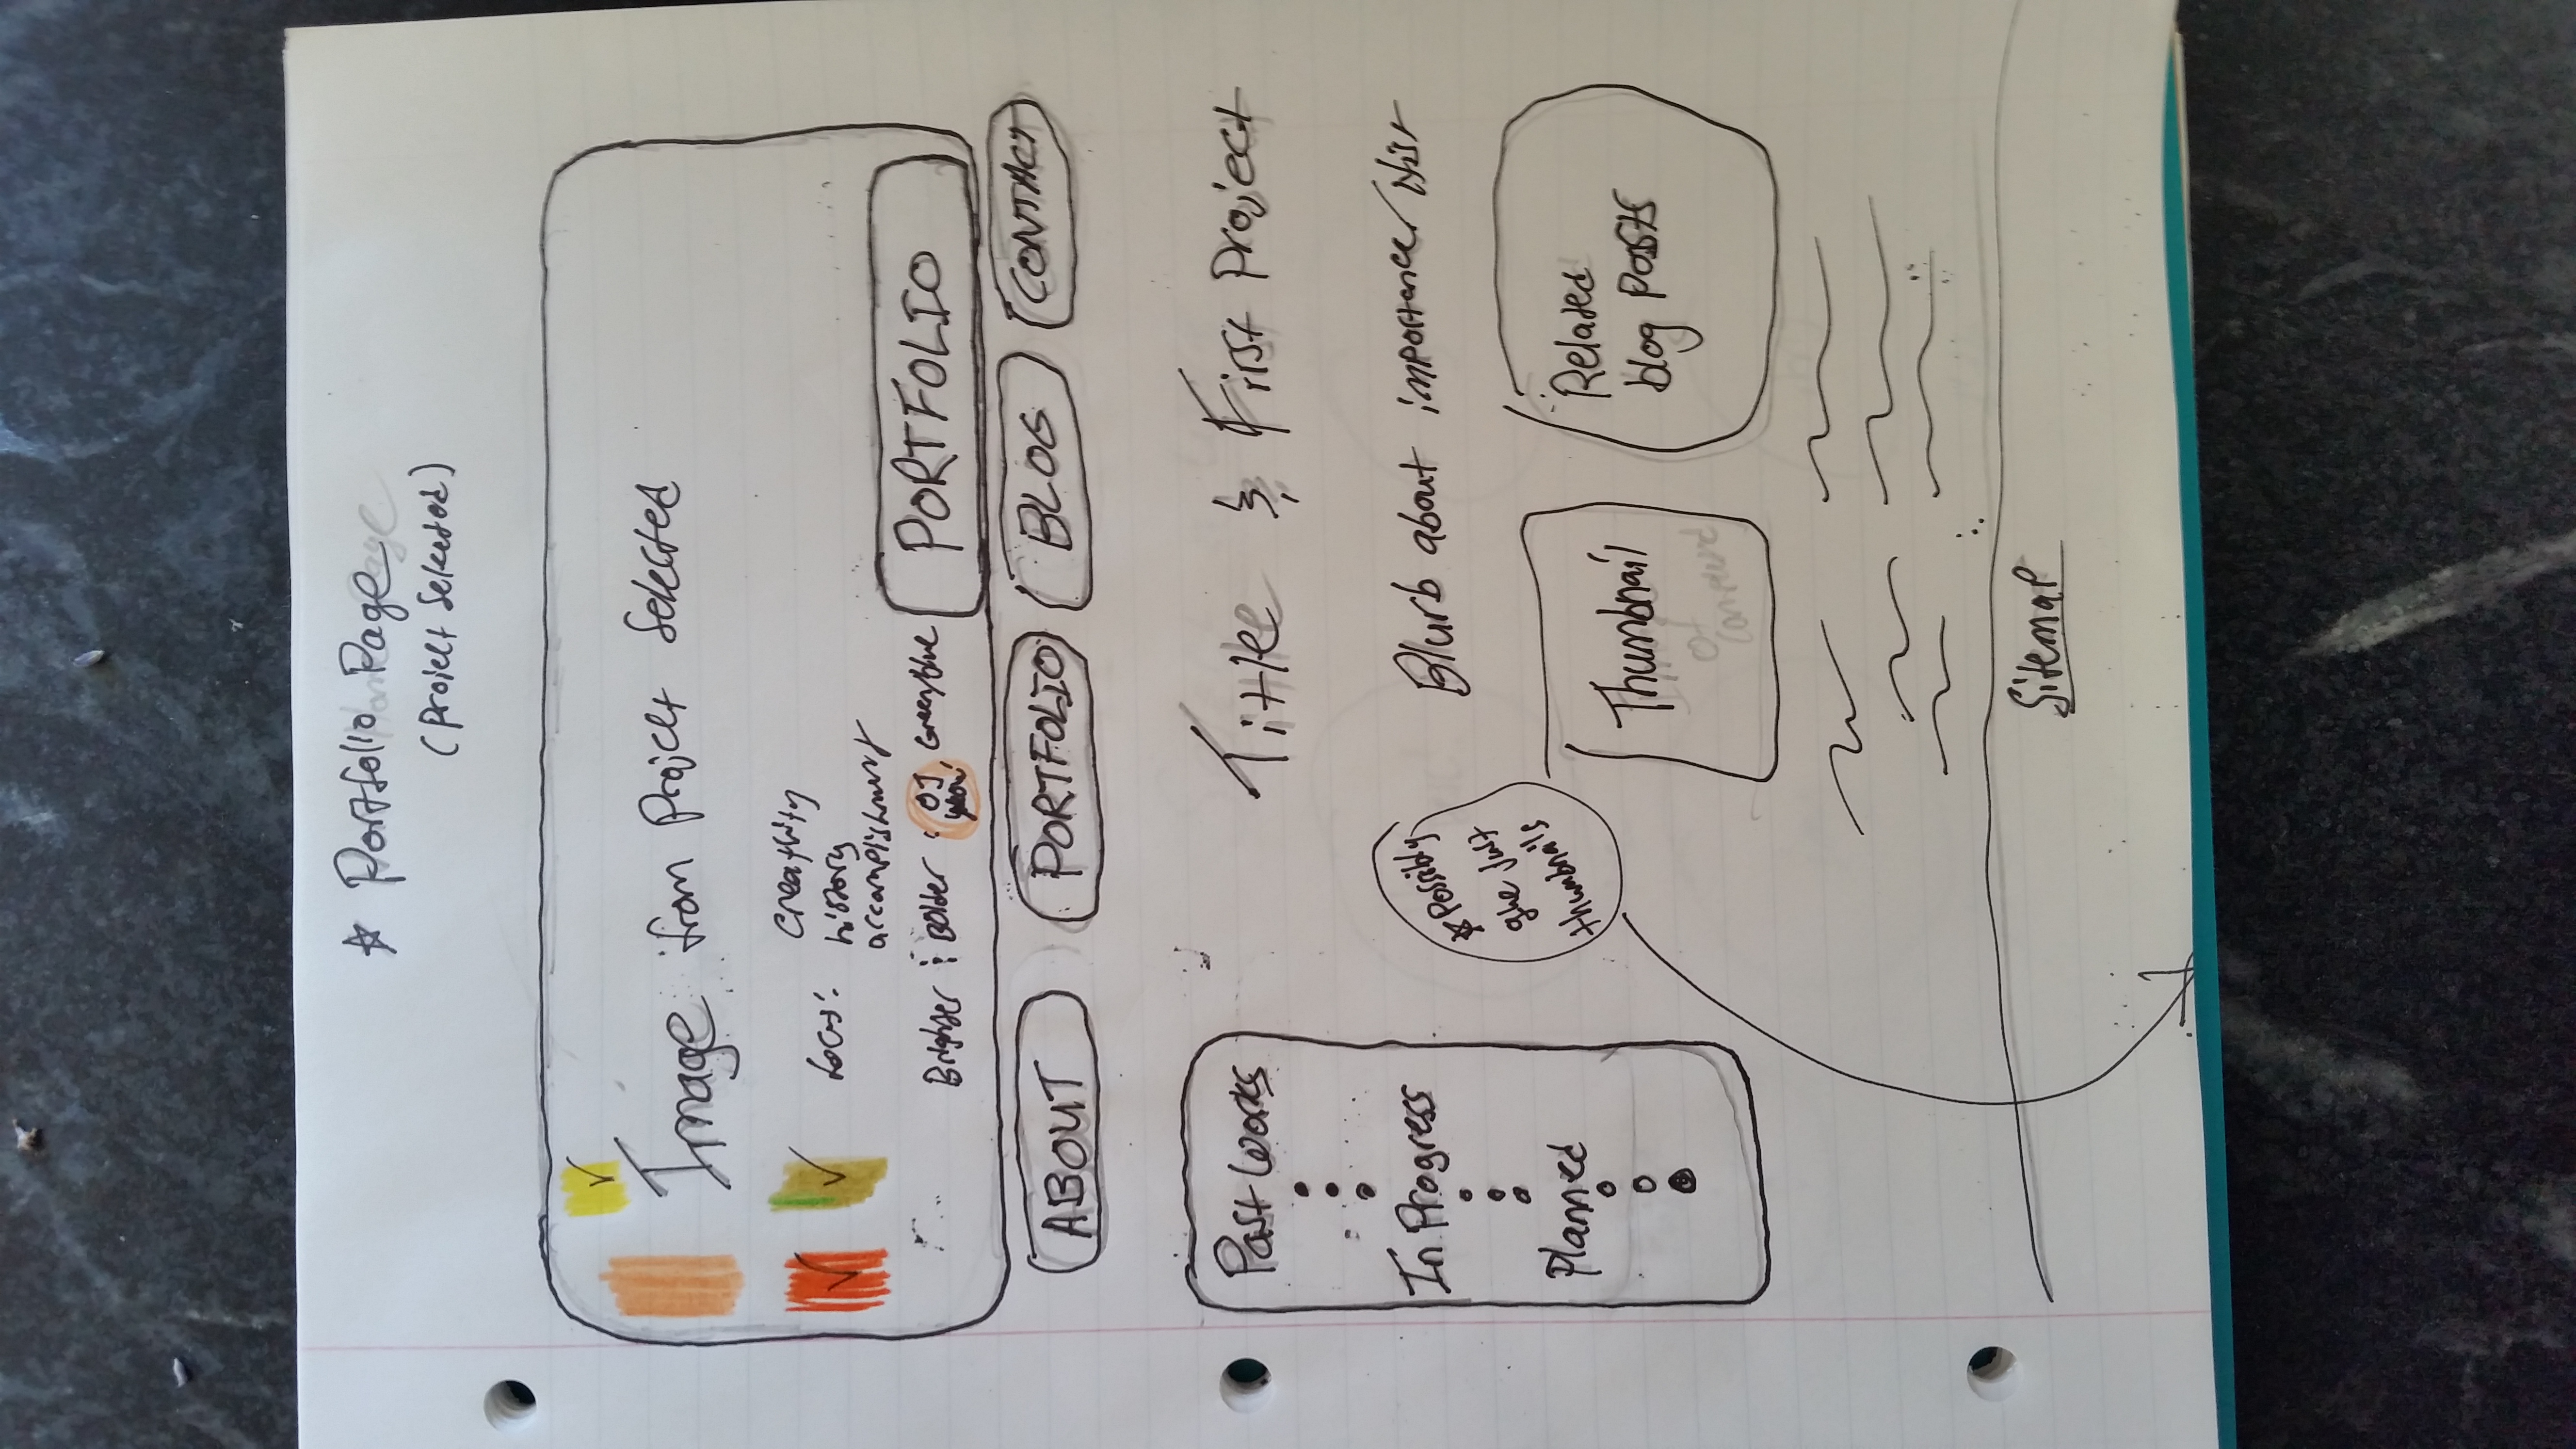 ☆ Portfolio Page
(Project Selected)
Image from Project Selected
focus: creativity
history
accomplishment
Brighter & Bolder : OJ, Green/blue
yellow
PORTFOLIO
ABOUT PORTFOLIO BLOG CONTACT
Past Works
In Progress
Planned
Title & First Project
Blurb about importance/Hist
☆ Possibly
give just
thumbnails
Thumbnail
Related
blog Posts
Sitemap